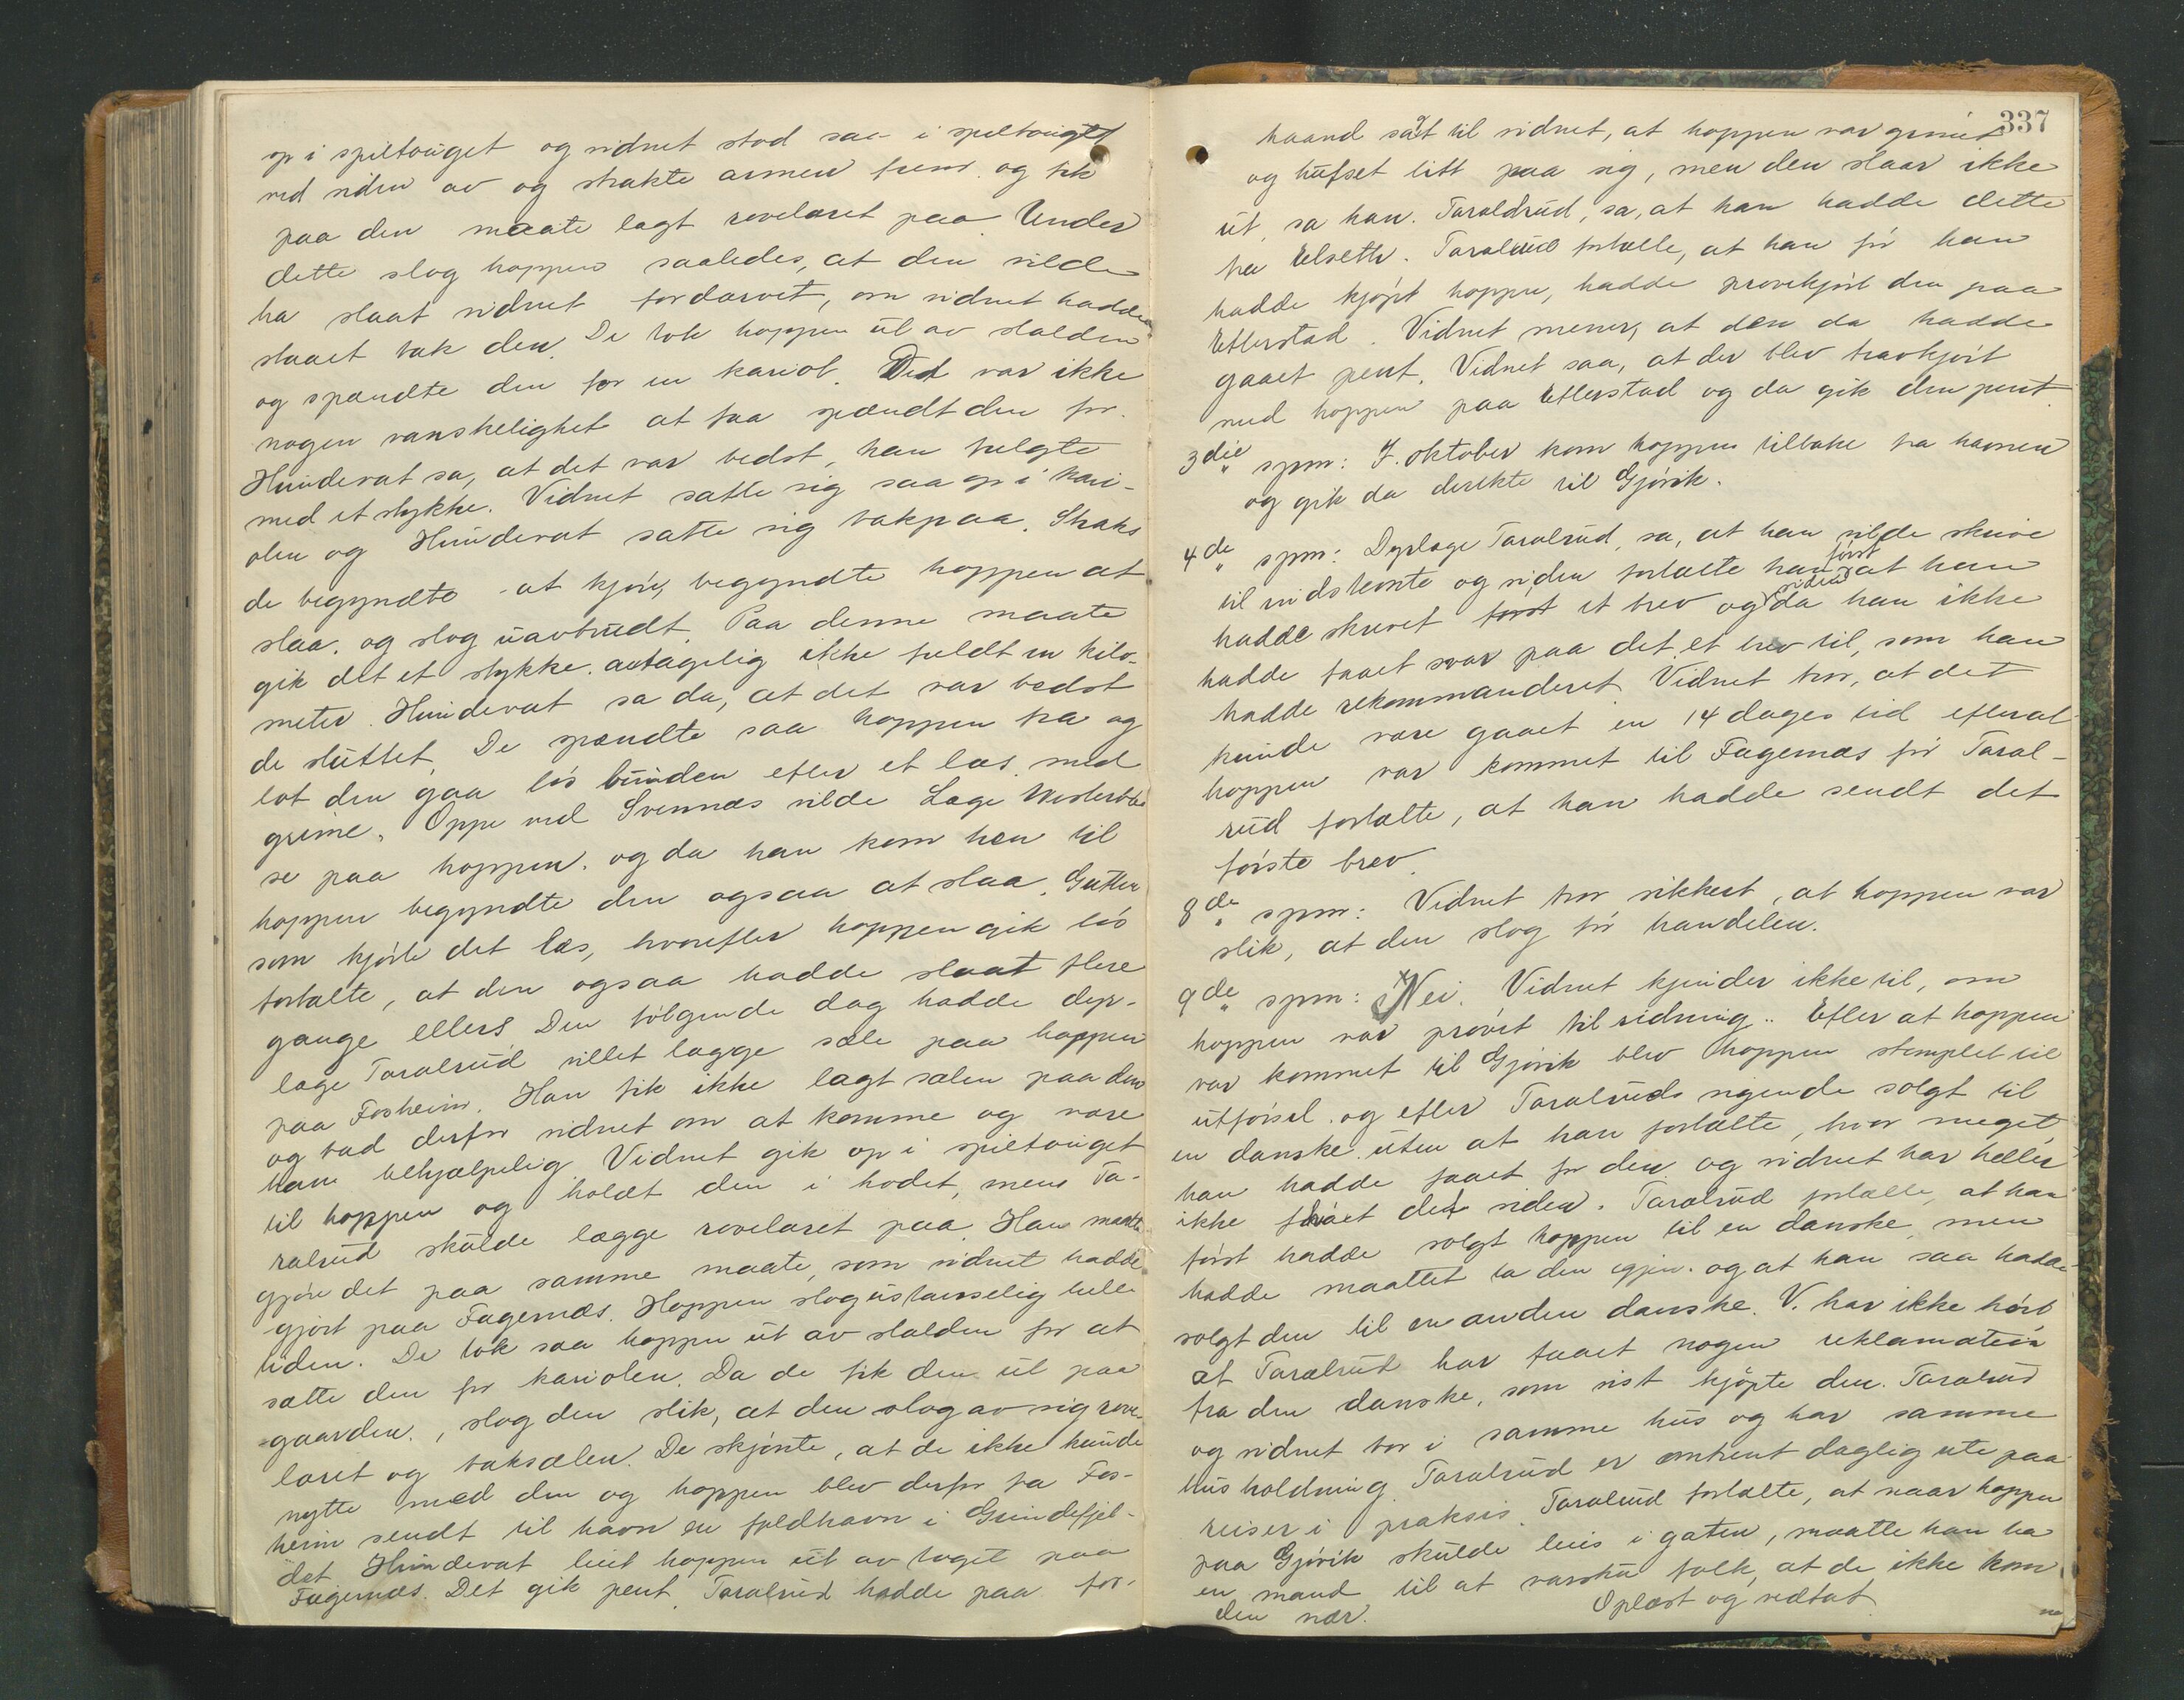 op i spiltouget og vidnet stod saa i spiltouget
ved siden av og strakte armen frem og fik
paa den maate lagt rovelæret paa. Under
dette slog hoppen saaledes, at den vilde
ha slaat vidnet fordærvet, om vidnet hadde
staaet bak den. De tok hoppen ut av stalden
og spændte den for en kariol. Det var ikke
nogen vanskelighet at faa spændt den for.
Hunderat sa, at det var bedst, han fulgte
med et stykke. Vidnet satte sig saa op i kari-
olen og Hunderat satte sig bakpaa. Straks
de begyndte at kjøre, begyndte hoppen at
slaa, og slog uavbrudt. Paa denne maate
gik det et stykke, antagelig ikke fuldt en kilo-
meter. Hunderat sa da, at det var bedst
de sluttet. De spændte saa hoppen fra og
lot den gaa løs bunden efter et læs med
grime. Oppe ved Svennæs vilde Lage Westerbbe
se paa hoppen, og da han kom hen til
hoppen begyndte den ogsaa at slaa. Gutten
som kjørte det læs, hvorefter hoppen gik løs
fortalte, at den ogsaa hadde slaat flere
gange ellers. Den følgende dag hadde dyr-
læge Taralrud villet lægge sæle paa hoppen
paa Fosheim. Han fik ikke lagt sælen paa den
og bad derfor vidnet om at komme og være
ham behjælpelig. Vidnet gik op i spiltouget
til hoppen og holdt den i hodet, mens Ta-
ralrud skulde lægge rovelæret paa. Han maatte
gjøre det paa samme maate, som vidnet hadde
gjort paa Fagernæs. Hoppen slog ustanselig hele
tiden. De tok saa hoppen ut av stalden for at
sætte den for kariolen. Da de fik den ut paa
gaarden, slog den slik, at den slog av sig rove-
læret og baksælen. De skjønte, at de ikke kunde
nytte med den og hoppen blev derfor fra Fos-
heim sendt til havn en fjeldhavn i Grindefjel-
det. Hunderat leiet hoppen ut av toget paa
Fagernæs. Det gik pent. Taralrud hadde paa for-
337
haand sagt til vidnet, at hoppen var grinet
og hufset litt paa sig, men den slaar ikke
ut, sa han. Taraldrud, sa, at han hadde dette
fra Elseth. Taralrud fortalte, at han før han
hadde kjøpt hoppen, hadde prøvekjørt den paa
Etterstad. Vidnet mener, at den da hadde
gaaet pent. Vidnet saa, at der blev travkjørt
med hoppen paa Etterstad og da gik den pent.
3die spm: I oktober kom hoppen tilbake fra havnen
og gik da direkte til Gjøvik.
4de spm: Dyrlæge Taralrud, sa, at han vilde skrive
til indstevnte og siden fortalte han først at han
hadde skrevet først et brev og siden da han ikke
hadde faaet svar paa det, et brev til, som han
hadde rekommanderet. Vidnet tror, at det
kunde være gaaet en 14 dages tid efterat
hoppen var kommet til Fagernæs før Taral-
rud fortalte, at han hadde sendt det
første brev.
8de spm: Vidnet tror sikkert, at hoppen var
slik, at den slog før handelen.
9de spm: Nei. Vidnet kjender ikke til, om
hoppen var prøvet til ridning. Efter at hoppen
var kommet til Gjøvik blev hoppen stemplet til
utførsel og efter Taralruds sigende solgt til
en danske uten at han fortalte, hvor meget
han hadde faaet for den og vidnet har heller
ikke faaet det siden. Taralrud fortalte, at han
først hadde solgt hoppen til en danske, men
hadde maattet ta den igjen og at han saa hadde
solgt den til en anden danske. V. har ikke hørt
at Taralrud har faaet nogen reklamation
fra den danske, som sist kjøpte den. Taralrud
og vidnet bor i samme hus og har samme
husholdning. Taralrud er omtrent daglig ute paa
reiser i praksis. Taralrud fortalte, at naar hoppen
paa Gjøvik skulde leies i gaten, maatte han ha
en mand til at varsku folk, at de ikke kom
den nær. Oplæst og vedtat